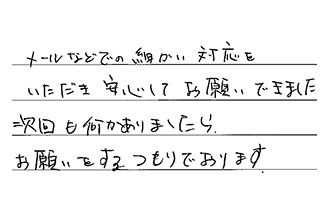 メールなどでの細かい対応を
いただき 安心して お願いできました
次回も何かありましたら、
お願いをするつもりでおります。